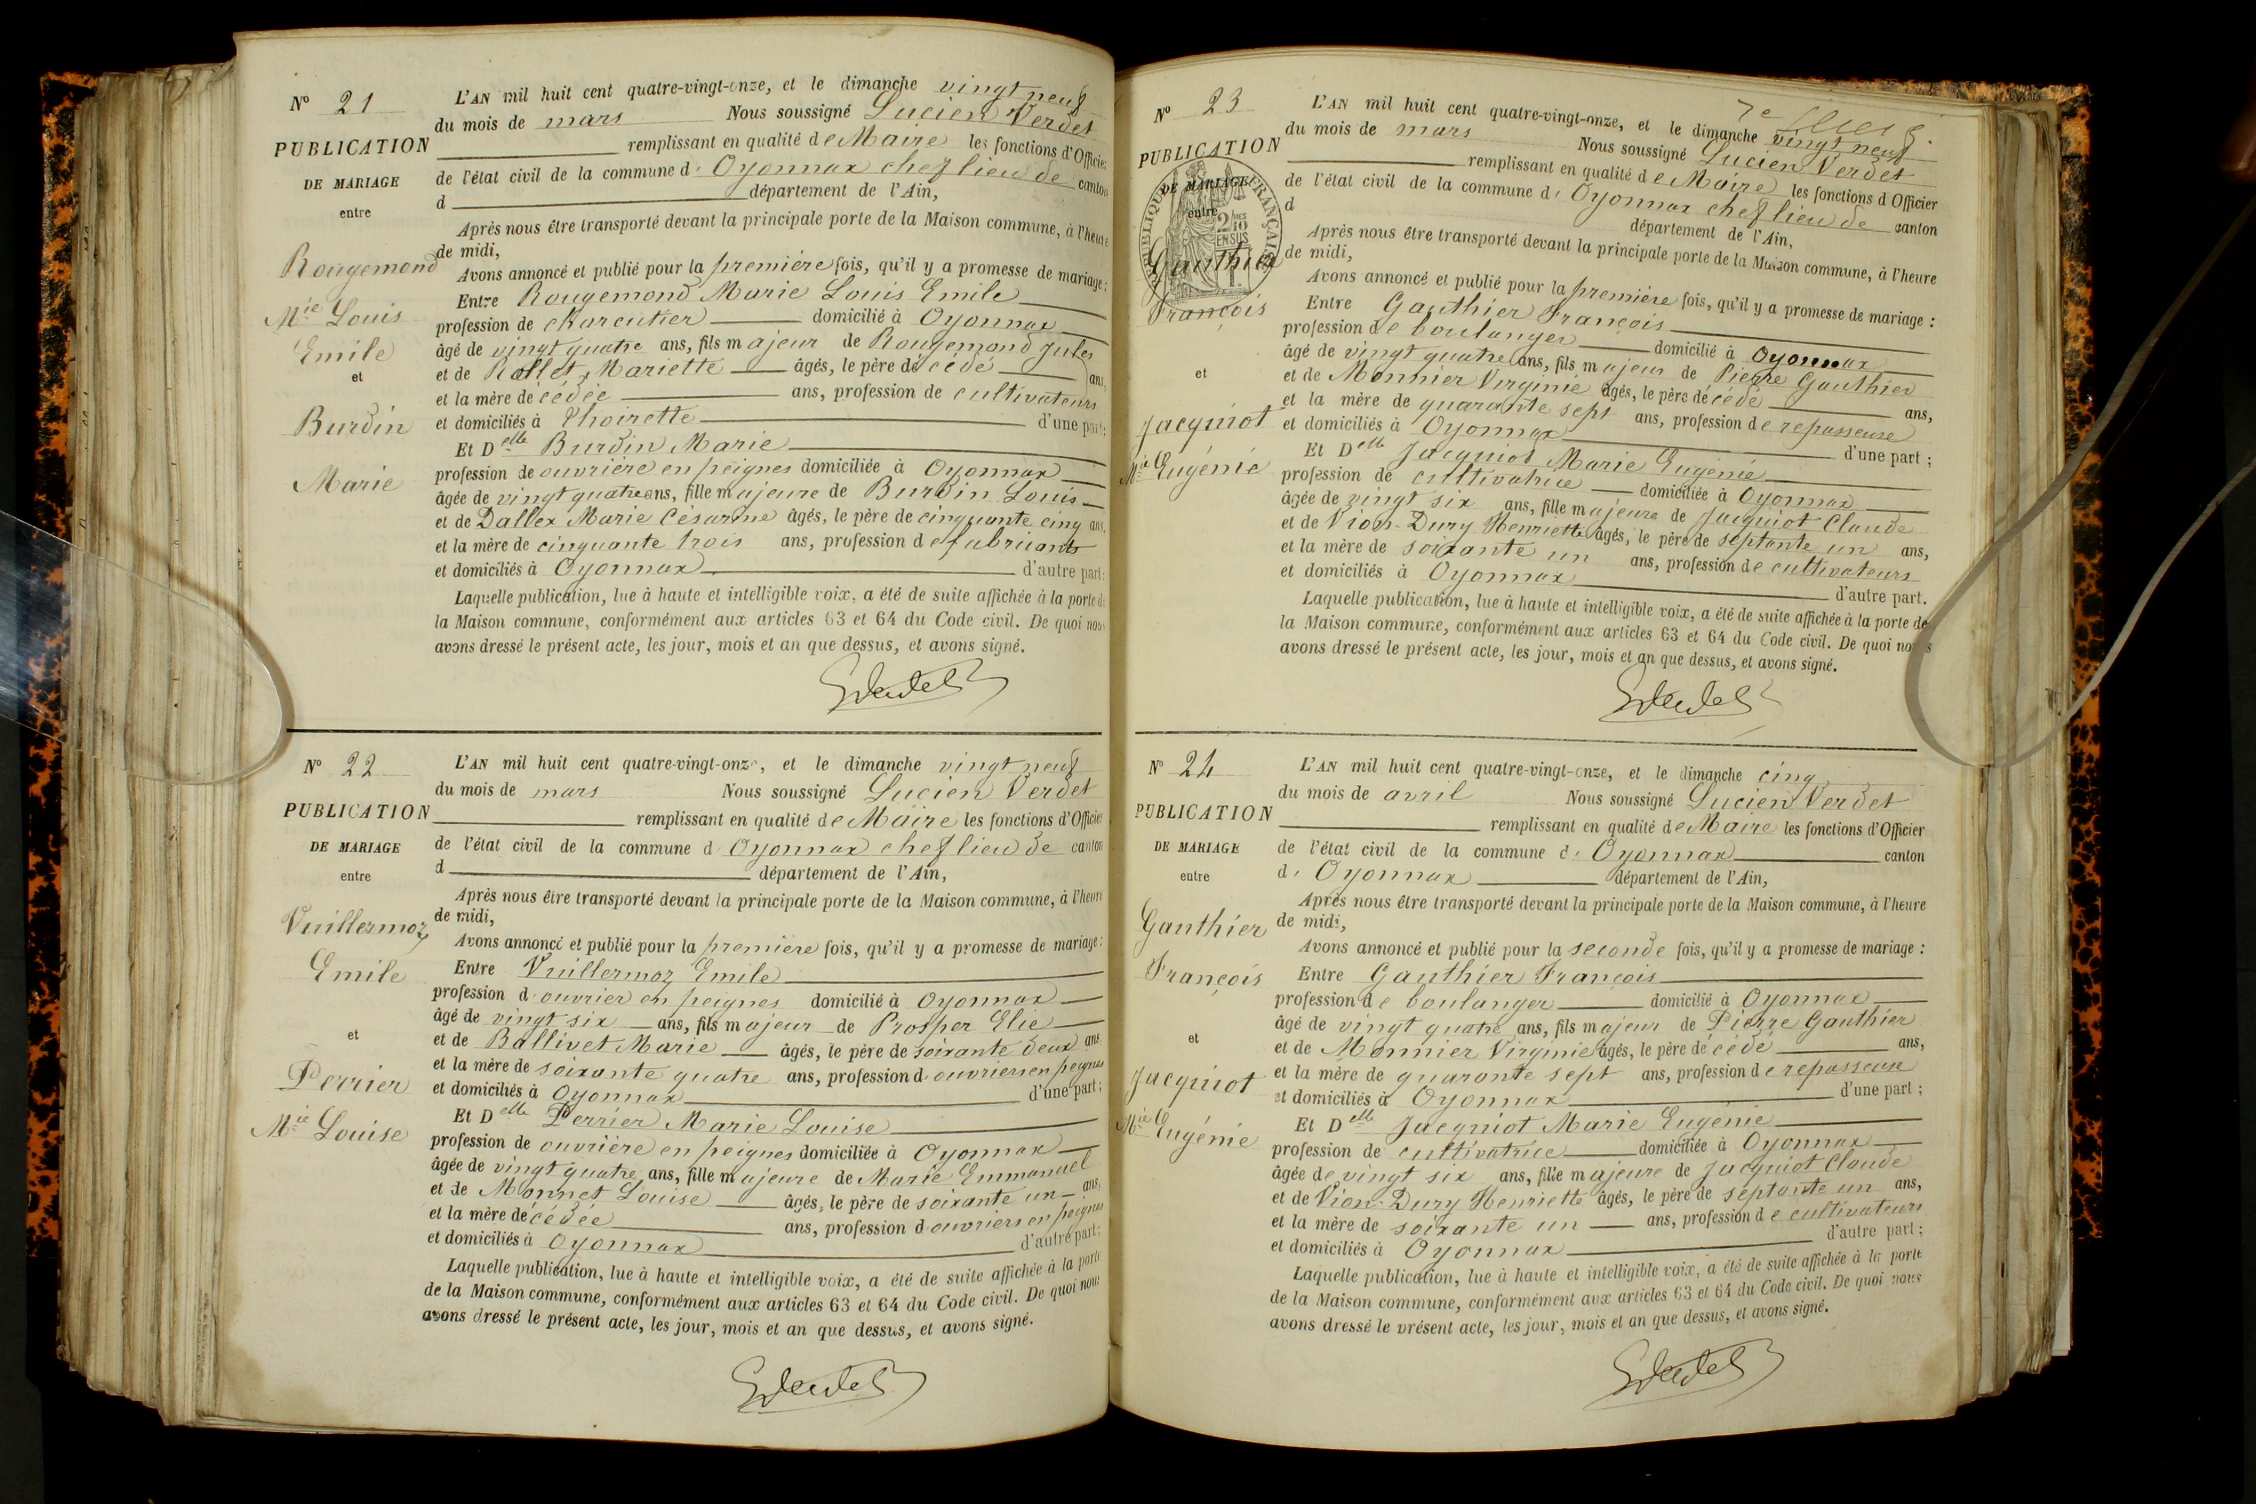 N° 21
PUBLICATION
DE MARIAGE
entre
Rougemond
Mie Louis
Emile
et
Burdin
Marie
L'AN mil huit cent quatre-vingt-onze, et le dimanche vingt neuf
du mois de mars Nous soussigné Lucien Verdet
remplissant en qualité de Maire les fonctions d'Officier
de l'état civil de la commune d' Oyonnax chef lieu de canton
d département de l'Ain,
Après nous être transporté devant la principale porte de la Maison commune, à l'heure
de midi,
Avons annoncé et publié pour la première fois, qu'il y a promesse de mariage :
Entre Rougemond Marie Louis Emile
profession de charcutier domicilié à Oyonnax
âgé de vingt quatre ans, fils majeur de Rougemond Jules
et de Rollet Mariette âgés, le père décédé ans,
et la mère décédée ans, profession de cultivateurs
et domiciliés à Thoirette d'une part ;
Et Delle Burdin Marie
profession de ouvrière en peignes domiciliée à Oyonnax
âgée de vingt quatre ans, fille majeure de Burdin Louis
et de Dallex Marie Césarine âgés, le père de cinquante cinq ans,
et la mère de cinquante trois ans, profession de fabricants
et domiciliés à Oyonnax d'autre part :
Laquelle publication, lue à haute et intelligible voix, a été de suite affichée à la porte de
la Maison commune, conformément aux articles 63 et 64 du Code civil. De quoi nous
avons dressé le présent acte, les jour, mois et an que dessus, et avons signé.
N° 22
PUBLICATION
DE MARIAGE
entre
Vuillermoz
Emile
et
Perrier
Mie Louise
L'AN mil huit cent quatre-vingt-onze, et le dimanche vingt neuf
du mois de mars Nous soussigné Lucien Verdet
remplissant en qualité de Maire les fonctions d'Officier
de l'état civil de la commune d Oyonnax chef lieu de canton
d département de l'Ain,
Après nous être transporté devant la principale porte de la Maison commune, à l'heure
de midi,
Avons annoncé et publié pour la première fois, qu'il y a promesse de mariage :
Entre Vuillermoz Emile
profession d'ouvrier en peignes domicilié à Oyonnax
âgé de vingt six ans, fils majeur de Prosper Elie
et de Ballivet Marie âgés, le père de soixante deux ans
et la mère de soixante quatre ans, profession d'ouvriers en peignes
et domiciliés à Oyonnax d'une part ;
Et Delle Perrier Marie Louise
profession de ouvrière en peignes domiciliée à Oyonnax
âgée de vingt quatre ans, fille majeure de Marie Emmanuel
et de Monnet Louise âgés, le père de soixante un ans,
et la mère décédée ans, profession d ouvriers en peignes
et domiciliés à Oyonnax d'autre part ;
Laquelle publication, lue à haute et intelligible voix, a été de suite affichée à la porte
de la Maison commune, conformément aux articles 63 et 64 du Code civil. De quoi nous
avons dressé le présent acte, les jour, mois et an que dessus, et avons signé.
N° 23
PUBLICATION
DE MARIAGE
entre
RÉPUBLIQUE FRANÇAISE
2/10
EN SUS
Gauthier
François
et
Jacquiot
Mie Eugénie
7e
L'AN mil huit cent quatre-vingt-onze, et le dimanche vingt neuf
du mois de mars Nous soussigné Lucien Verdet
remplissant en qualité de Maire les fonctions d'Officier
de l'état civil de la commune d' Oyonnax chef lieu de canton
d département de l'Ain,
Après nous être transporté devant la principale porte de la Maison commune, à l'heure
de midi,
Avons annoncé et publié pour la première fois, qu'il y a promesse de mariage :
Entre Gauthier François
profession de boulanger domicilié à Oyonnax
âgé de vingt quatre ans, fils majeur de Pierre Gauthier
et de Monnier Virginie âgés, le père décédé ans,
et la mère de quarante sept ans, profession de repasseuse
et domiciliés à Oyonnax d'une part ;
Et Delle Jacquiot Marie Eugénie
profession de cultivatrice domiciliée à Oyonnax
âgée de vingt six ans, fille majeure de Jacquiot Claude
et de Vion-Dury Henriette âgés, le père de septante un ans,
et la mère de soixante un ans, profession de cultivateurs
et domiciliés à Oyonnax d'autre part.
Laquelle publication, lue à haute et intelligible voix, a été de suite affichée à la porte de
la Maison commune, conformément aux articles 63 et 64 du Code civil. De quoi nous
avons dressé le présent acte, les jour, mois et an que dessus, et avons signé.
N° 24
PUBLICATION
DE MARIAGE
entre
Gauthier
François
et
Jacquiot
Mie Eugénie
L'AN mil huit cent quatre-vingt-onze, et le dimanche cinq
du mois de avril Nous soussigné Lucien Verdet
remplissant en qualité de Maire les fonctions d'Officier
de l'état civil de la commune d' Oyonnax canton
d' Oyonnax département de l'Ain,
Après nous être transporté devant la principale porte de la Maison commune, à l'heure
de midi,
Avons annoncé et publié pour la seconde fois, qu'il y a promesse de mariage :
Entre Gauthier François
profession de boulanger domicilié à Oyonnax
âgé de vingt quatre ans, fils majeur de Pierre Gauthier
et de Monnier Virginie âgés, le père décédé ans,
et la mère de quarante sept ans, profession de repasseuse
et domiciliés à Oyonnax d'une part ;
Et Delle Jacquiot Marie Eugénie
profession de cultivatrice domiciliée à Oyonnax
âgée de vingt six ans, fille majeure de Jacquiot Claude
et de Vion-Dury Henriette âgés, le père de septante un ans,
et la mère de soixante un ans, profession de cultivateurs
et domiciliés à Oyonnax d'autre part ;
Laquelle publication, lue à haute et intelligible voix, a été de suite affichée à la porte
de la Maison commune, conformément aux articles 63 et 64 du Code civil. De quoi nous
avons dressé le présent acte, les jour, mois et an que dessus, et avons signé.